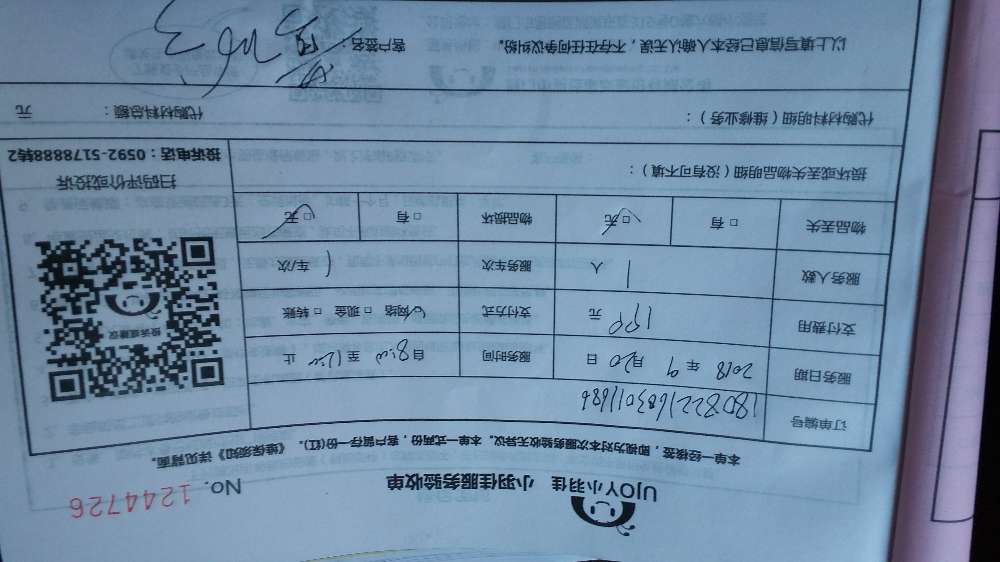 UJOY小羽佳 小羽佳服务验收单
No. 1244726
本单一经核签，即视为对本次服务验收无异议。本单一式两份，客户留存一份(红)。《维保须知》详见背面。
订单编号
服务日期 2018 年 9 月 20 日 服务时间 自 8:00 至 12:00 止
支付费用 元 支付方式 网络 □ 现金 □ 转账
服务人数 1 人 服务车次 1 车/次
物品丢失 □ 有 □ 无 物品损坏 □ 有 □ 无
损坏或丢失物品明细（没有可不填）：
投诉或建议
扫码评价或投诉
投诉电话：0592-5178888转2
代购材料明细（维修业务）：
代购材料总额： 元
以上填写信息已经本人确认无误，不存在任何争议纠纷。 客户签名：